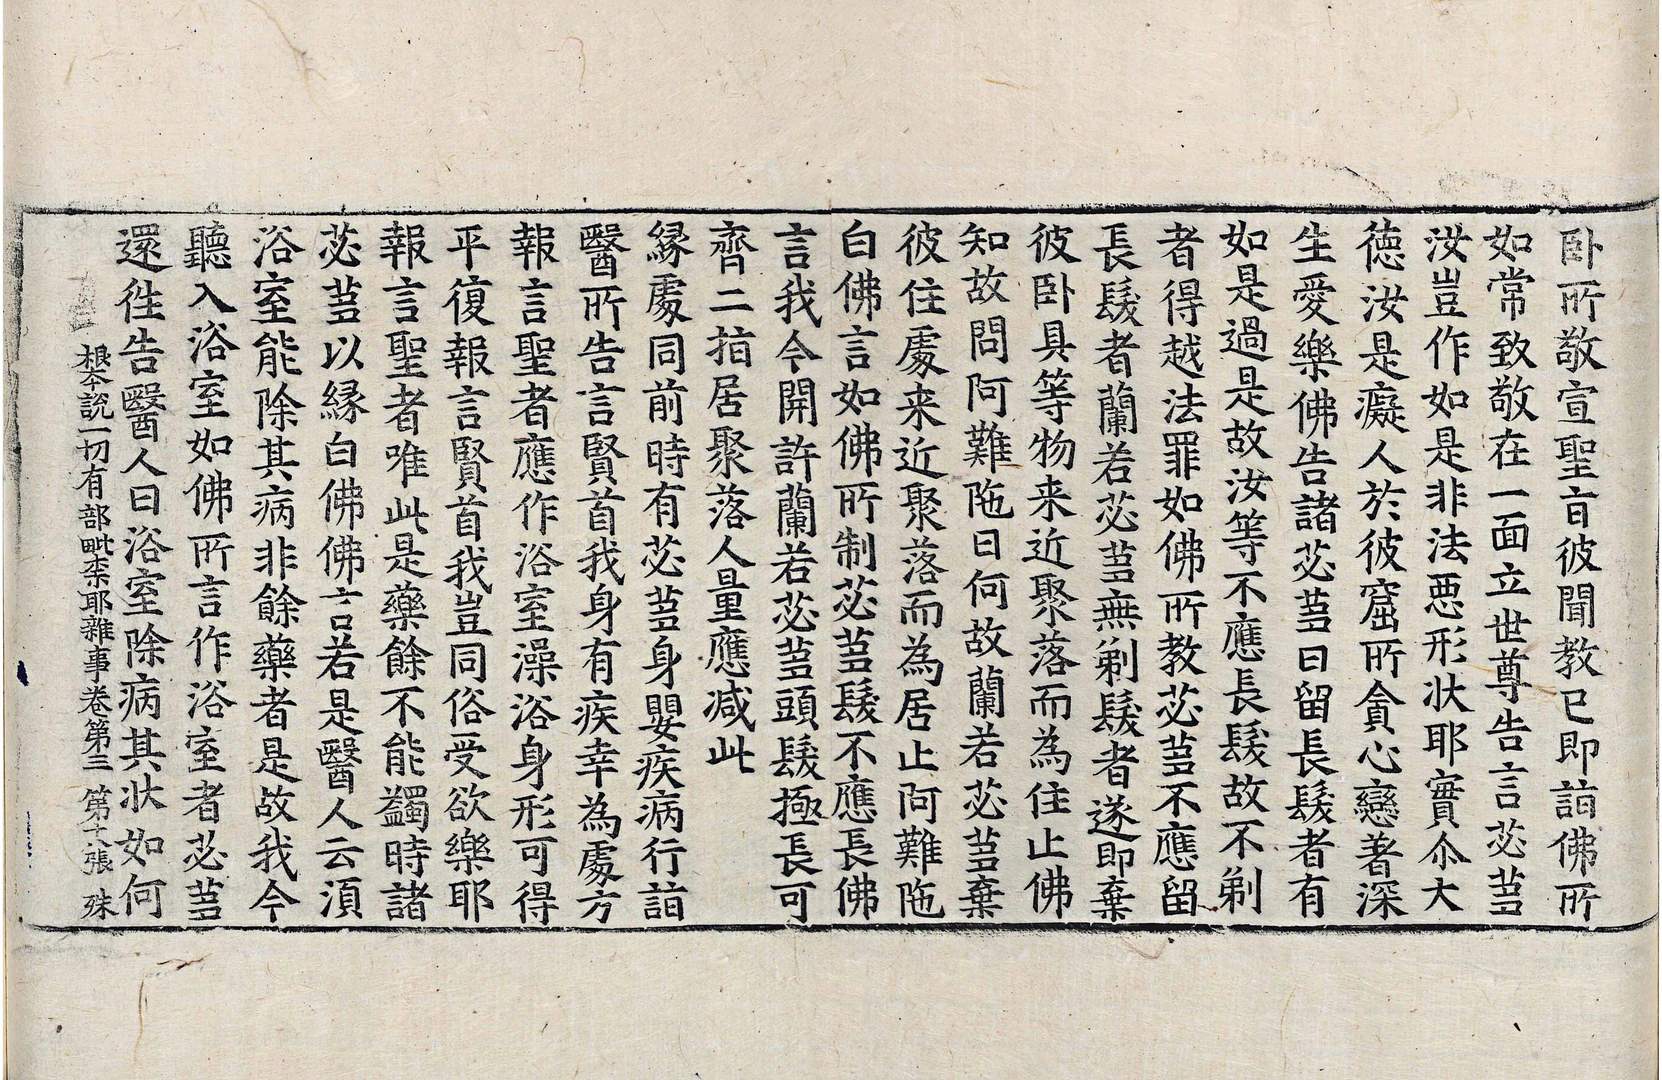 卧所敬宣聖旨彼聞教已即詣佛所
如常致敬在一面立世尊告言苾芻
汝豈作如是非法悪形状耶實尒大
徳汝是癡人於彼窟所貪心戀著深
生愛樂佛告諸苾芻曰留長髮者有
如是過是故汝等不應長髮故不剃
者得越法罪如佛所教苾芻不應留
長髮者蘭若苾芻無剃髮者遂即棄
彼卧具等物来近聚落而為住止佛
知故問阿難陁曰何故蘭若苾芻棄
彼住處来近聚落而為居止阿難陁
白佛言如佛所制苾芻髮不應長佛
言我今開許蘭若苾芻頭髮極長可
齊二指居聚落人量應减此
縁處同前時有苾芻身嬰疾病行詣
醫所告言賢首我身有疾幸為處方
報言聖者應作浴室澡浴身形可得
平復報言賢首我豈同俗受欲樂耶
報言聖者唯此是藥餘不能蠲時諸
苾芻以縁白佛佛言若是醫人云須
浴室能除其病非餘藥者是故我今
聽入浴室如佛所言作浴室者苾芻
還徃告醫人曰浴室除病其状如何
根本說一切有部毗柰耶雜事卷第三　第十八張　殊